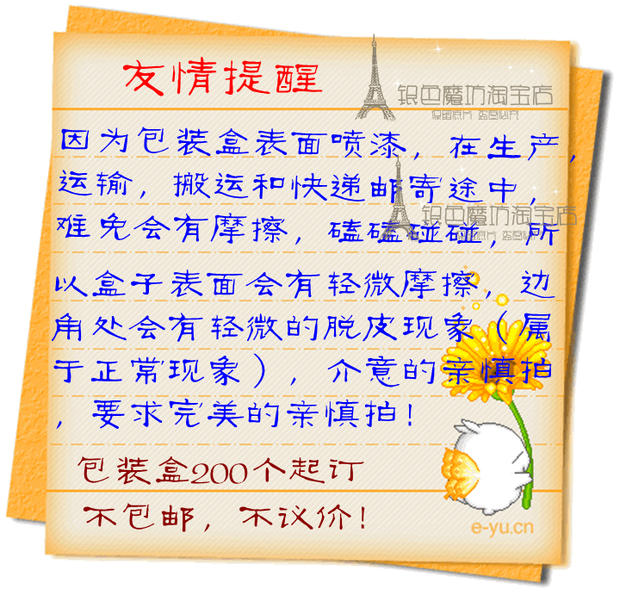 友情提醒
银色魔坊淘宝店
保留原片 盗图必究
因为包装盒表面喷漆，在生产，
运输，搬运和快递邮寄途中，
银色魔坊淘宝店
保留原片 盗图必究
难免会有摩擦，磕磕碰碰，所
以盒子表面会有轻微摩擦，边
角处会有轻微的脱皮现象（属
于正常现象），介意的亲慎拍
，要求完美的亲慎拍！
包装盒200个起订
不包邮，不议价！
e-yu.cn